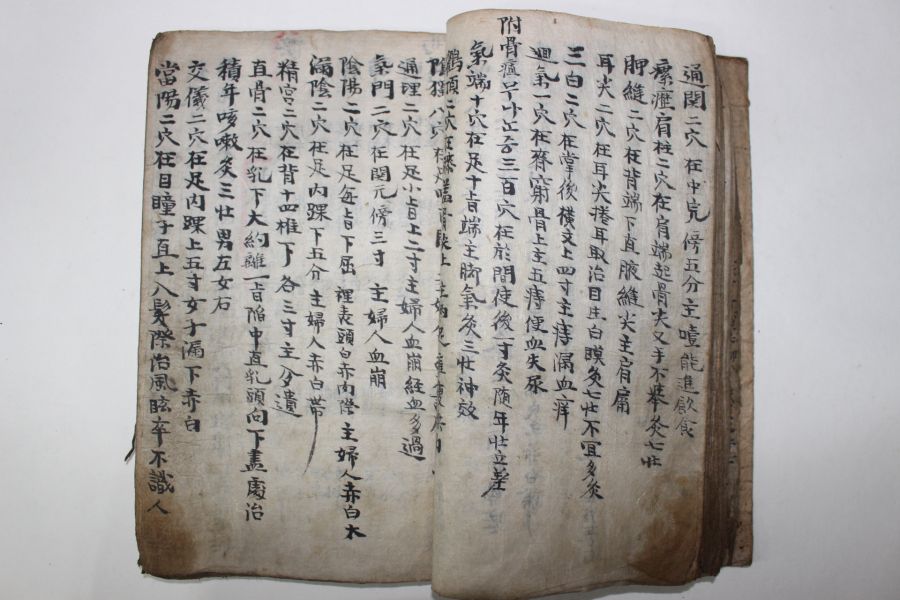 通関二穴在中完傍五分主噎能進飮食
瘰瀝肩柱二穴在肩端起骨尖又手不擧灸七壯
胛縫二穴在背端下直腋縫尖主肩痛
耳尖二穴在耳尖捲耳取治目生白膜灸七壯不宜多灸
三白二穴在掌後橫文上四寸主痔漏血痒
迴氣一穴在脊窮骨上主五痔便血失尿
附骨疽 三百穴在於間使後一寸灸隨年壯立差
氣端十穴在足十旨端主脚氣灸三壯神效
鶴頂二穴在膝盖骨
八穴在
通理二穴在足小旨上二寸主婦人血崩經血多過
氣門二穴在関元傍三寸 主婦人血崩
陰陽二穴在足每旨下屈裡表頭白赤肉際主婦人赤白
滿陰二穴在足內踝下五分 主婦人赤白帶
精宮二穴在背十四椎下各三寸主夕遺
直骨二穴在乳下大約離一旨陷中直乳頭向下盡處治
積年咳嗽灸三壯男左女右
交儀二穴在足內踝上五寸女子漏下赤白
當陽二穴在目瞳子直上入髮際治風眩卒不識人